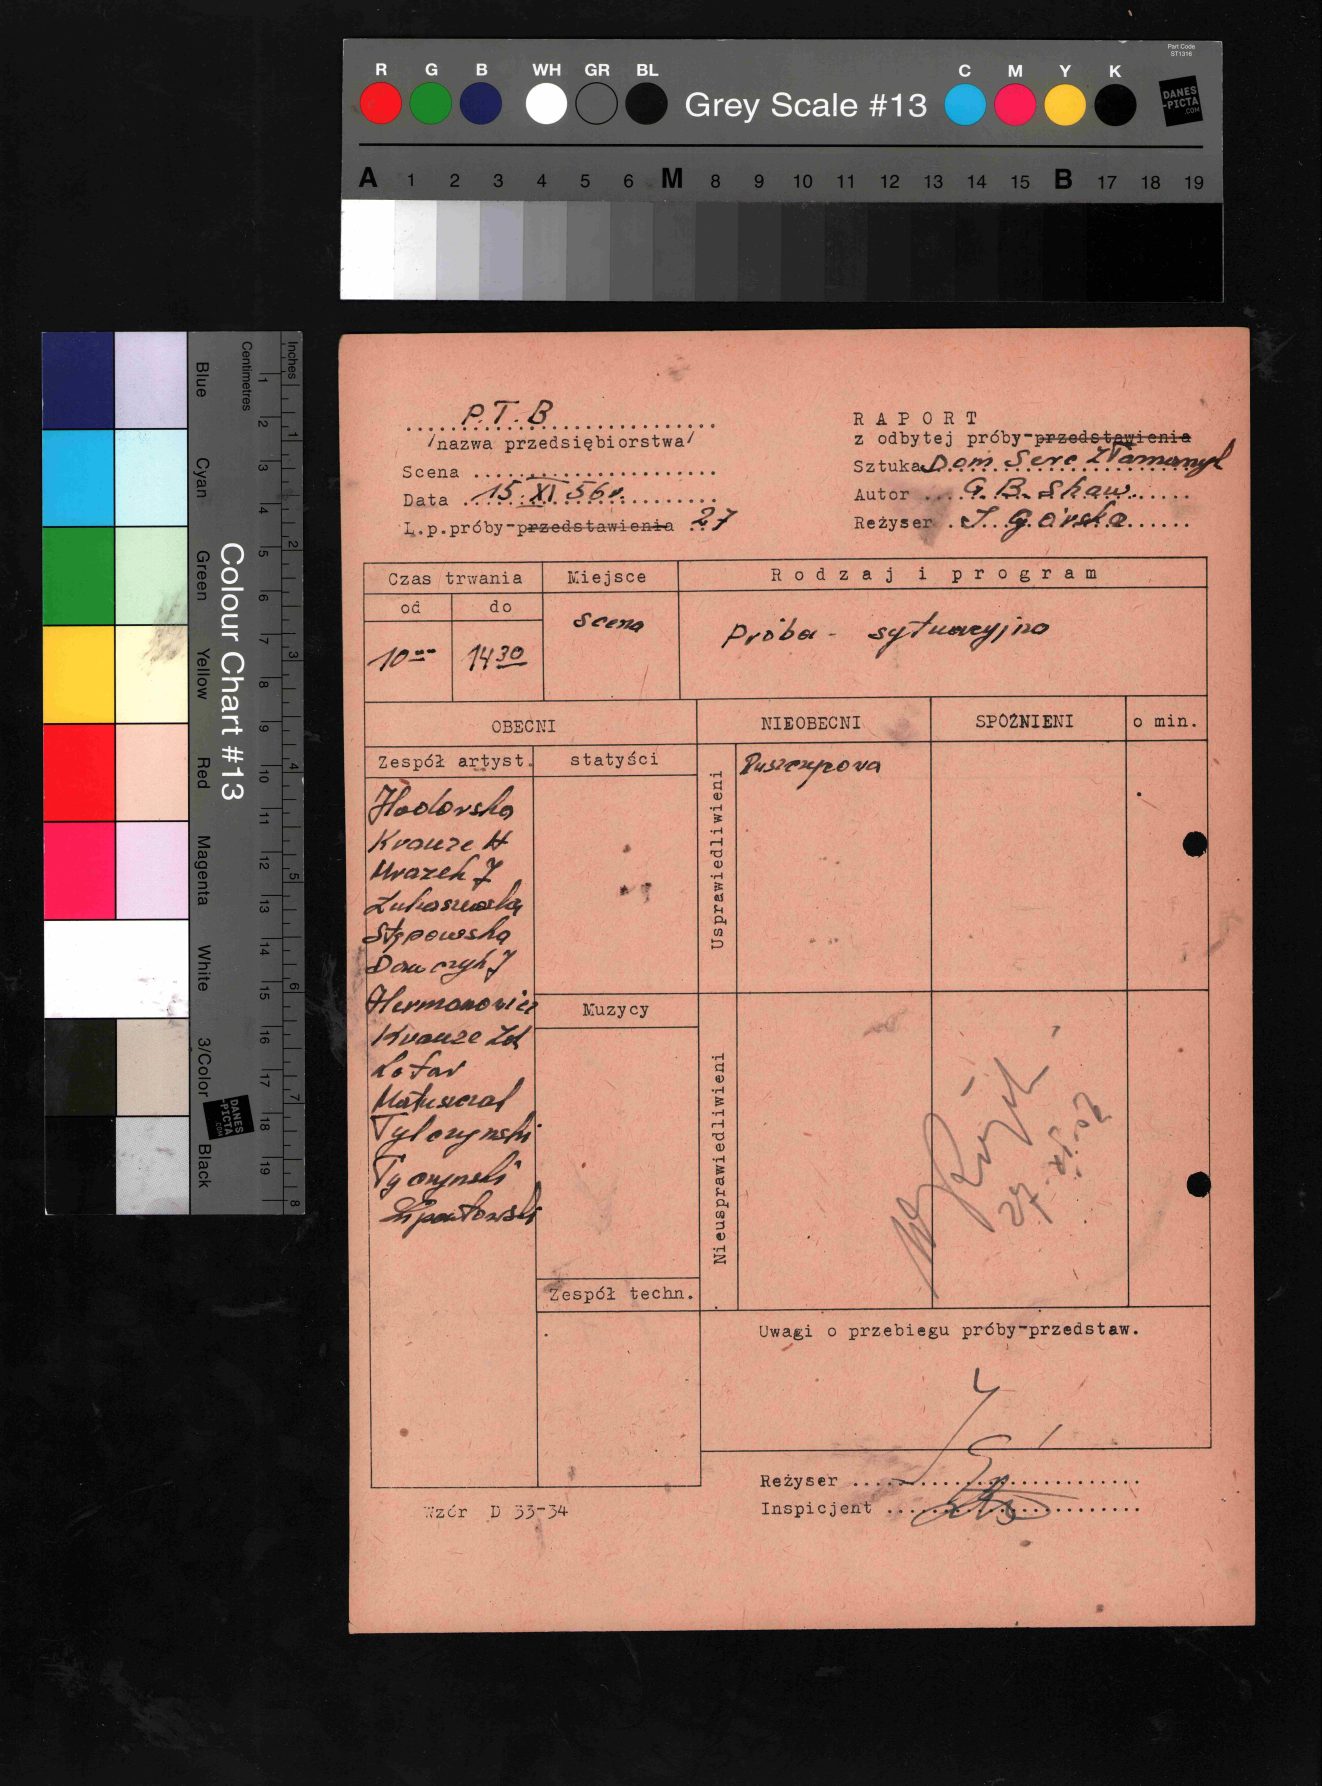 Part Code
ST1316
R G B WH GR BL
Grey Scale #13
C M Y K
DANES
-PICTA
.COM
A 1 2 3 4 5 6 M 8 9 10 11 12 13 14 15 B 17 18 19
Colour Chart #13
Blue
Cyan
Green
Yellow
Red
Magenta
White
3/Color
Black
Centimetres
1 2 3 4 5 6 7 8 9 10 11 12 13 14 15 16 17 18 19
Inches
1 2 3 4 5 6 7 8
DANES
-PICTA
.COM
P.T.B
/nazwa przedsiębiorstwa/
Scena
Data 15 XI 56r.
L.p.próby-przedstawienia 27
RAPORT
z odbytej próby-przedstawienia
Sztuka Dom Serc Złamanych
Autor G. B. Shaw
Reżyser I Górska
Czas trwania
Miejsce
Rodzaj i program
od
do
10 00
14 30
scena
Próba - sytuacyjna
OBECNI
NIEOBECNI
SPÓŹNIENI
o min.
Zespół artyst.
statyści
Usprawiedliwieni
Hodorska
Krauze H
Mrazek J
Łukaszewska
Stępowska
Hermanowicz
Krauze Zd
Lotar
Matuszczak
Tylczyński
Tyczyński
Muzycy
Nieusprawiedliwieni
Zespół techn.
Uwagi o przebiegu próby-przedstaw.
Reżyser
Inspicjent
Wzór D 33-34